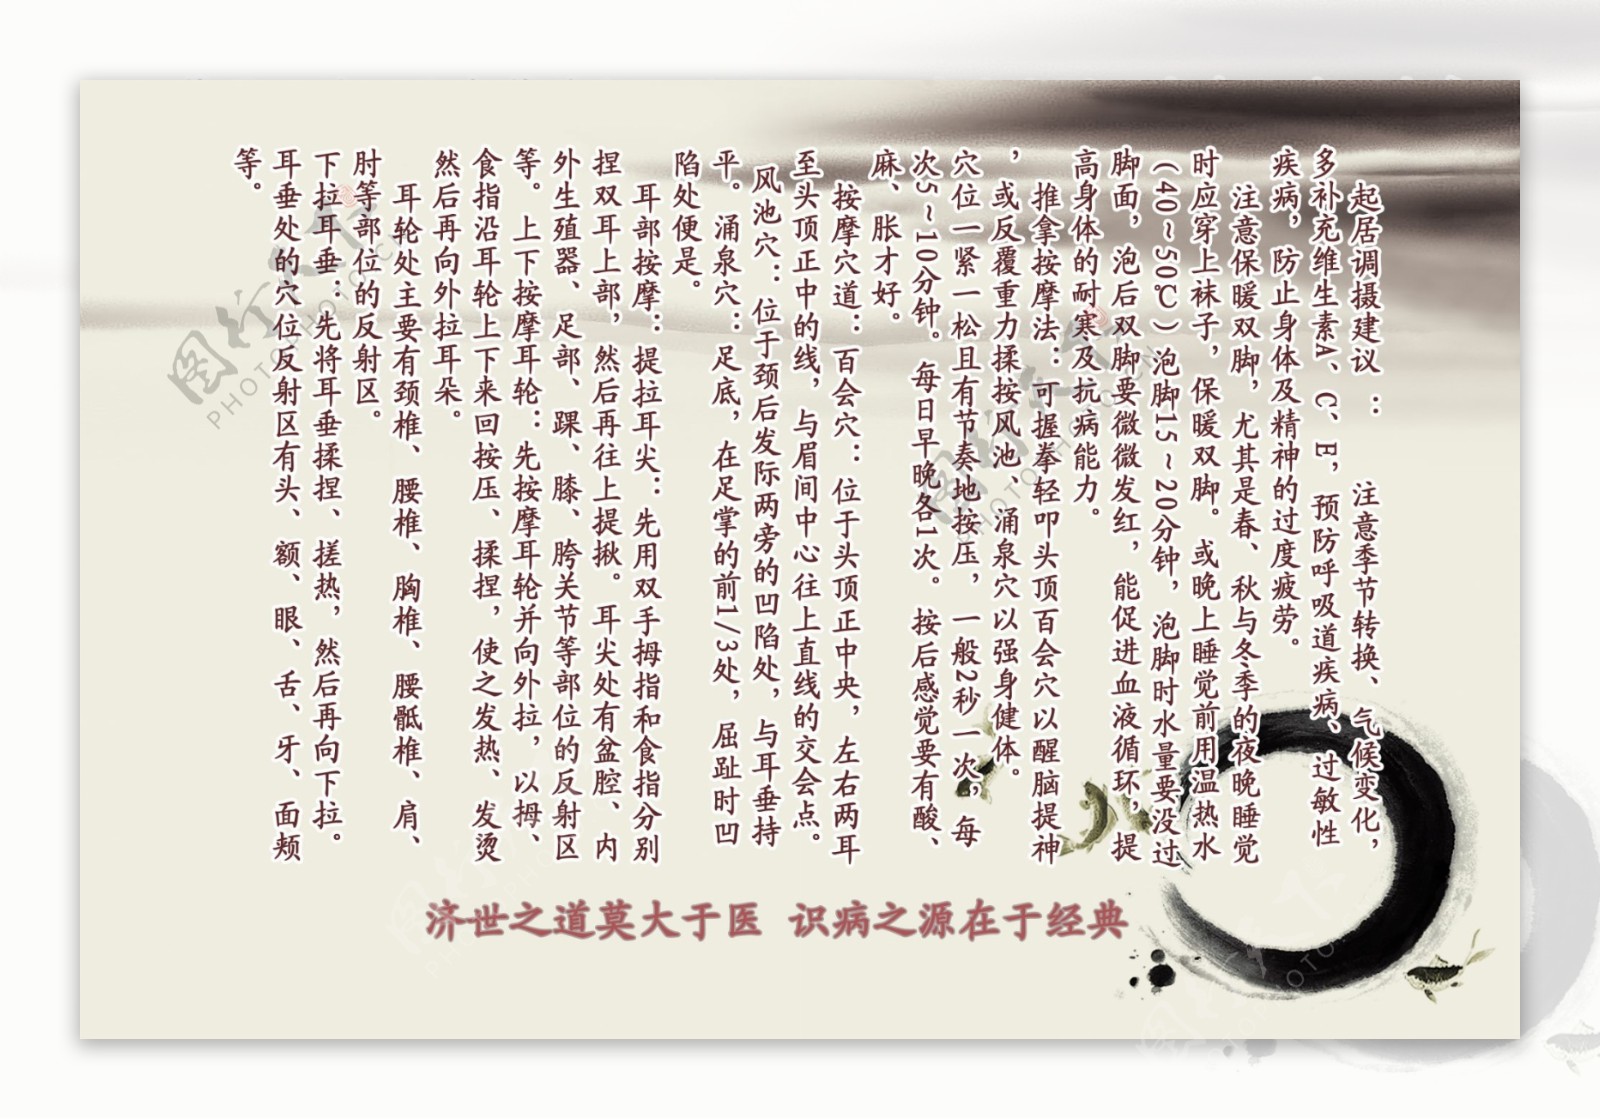 起居调摄建议： 注意季节转换、气候变化，
多补充维生素A、C、E，预防呼吸道疾病、过敏性
疾病，防止身体及精神的过度疲劳。
注意保暖双脚，尤其是春、秋与冬季的夜晚睡觉
时应穿上袜子，保暖双脚。或晚上睡觉前用温热水
（40～50℃）泡脚15～20分钟，泡脚时水量要没过
脚面，泡后双脚要微微发红，能促进血液循环，提
高身体的耐寒及抗病能力。
推拿按摩法：可握拳轻叩头顶百会穴以醒脑提神
，或反覆重力揉按风池、涌泉穴以强身健体。
穴位一紧一松且有节奏地按压，一般2秒一次，每
次5～10分钟。每日早晚各1次。按后感觉要有酸、
麻、胀才好。
按摩穴道：百会穴：位于头顶正中央，左右两耳
至头顶正中的线，与眉间中心往上直线的交会点。
风池穴：位于颈后发际两旁的凹陷处，与耳垂持
平。涌泉穴：足底，在足掌的前1/3处，屈趾时凹
陷处便是。
耳部按摩：提拉耳尖：先用双手拇指和食指分别
捏双耳上部，然后再往上提揪。耳尖处有盆腔、内
外生殖器、足部、踝、膝、胯关节等部位的反射区
等。上下按摩耳轮：先按摩耳轮并向外拉，以拇、
食指沿耳轮上下来回按压、揉捏，使之发热、发烫
然后再向外拉耳朵。
耳轮处主要有颈椎、腰椎、胸椎、腰骶椎、肩、
肘等部位的反射区。
下拉耳垂：先将耳垂揉捏、搓热，然后再向下拉。
耳垂处的穴位反射区有头、额、眼、舌、牙、面颊
等。
济世之道莫大于医 识病之源在于经典